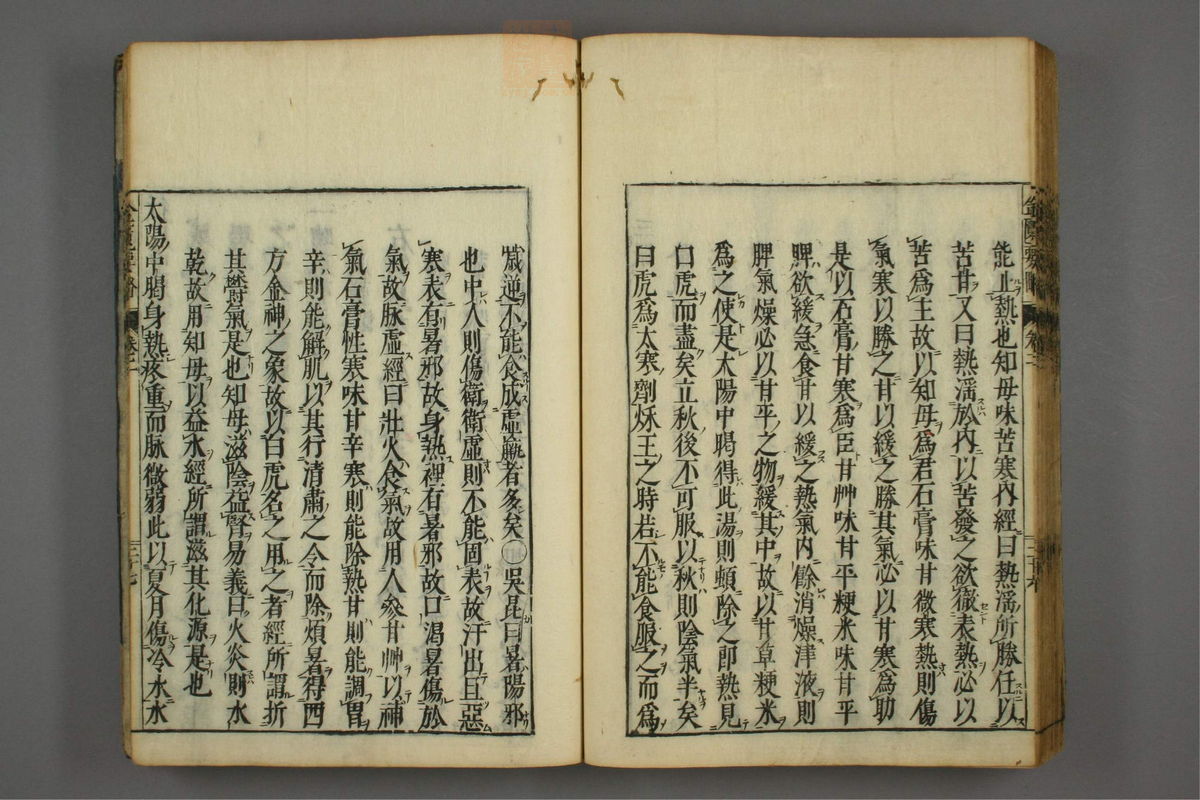 能止熱也知母味苦寒内經曰熱淫所勝佐以
苦甘又曰熱淫於内以苦發之欲徹表熱必以
苦爲主故以知母爲君石膏味甘微寒熱則傷
氣寒以勝之甘以緩之勝其氣必以甘寒爲助
是以石膏甘寒爲臣甘艸味甘平粳米味甘平
脾欲緩急食甘以緩之熱氣内餘消燥津液則
脾氣燥必以甘平之物緩其中故以甘草粳米
爲之使是太陽中暍得此湯則頓除之即熱見
白虎而盡矣立秋後不可服以秋則陰氣半矣
白虎爲大寒劑秋王之時若不能食服之而爲
噦逆不能食成虛羸者多矣○吳昆曰暑陽邪
也中人則傷衛衛虛則不能固表故汗出且惡
寒表有暑邪故身熱裡有暑邪故口渴暑傷於
氣故脉虛經曰壯火食氣故用人參甘艸以補
氣石膏性寒味甘辛寒則能除熱甘則能調胃
辛則能解肌以其行清肅之令而除煩暑得西
方金神之象故以白虎名之用之者經所謂折
其鬱氣是也知母滋陰益腎易義曰火炎則水
乾故用知母以益水經所謂滋其化源是也
太陽中暍身熱疼重而脉微弱此以夏月傷冷水水
金匱要略
卷之二